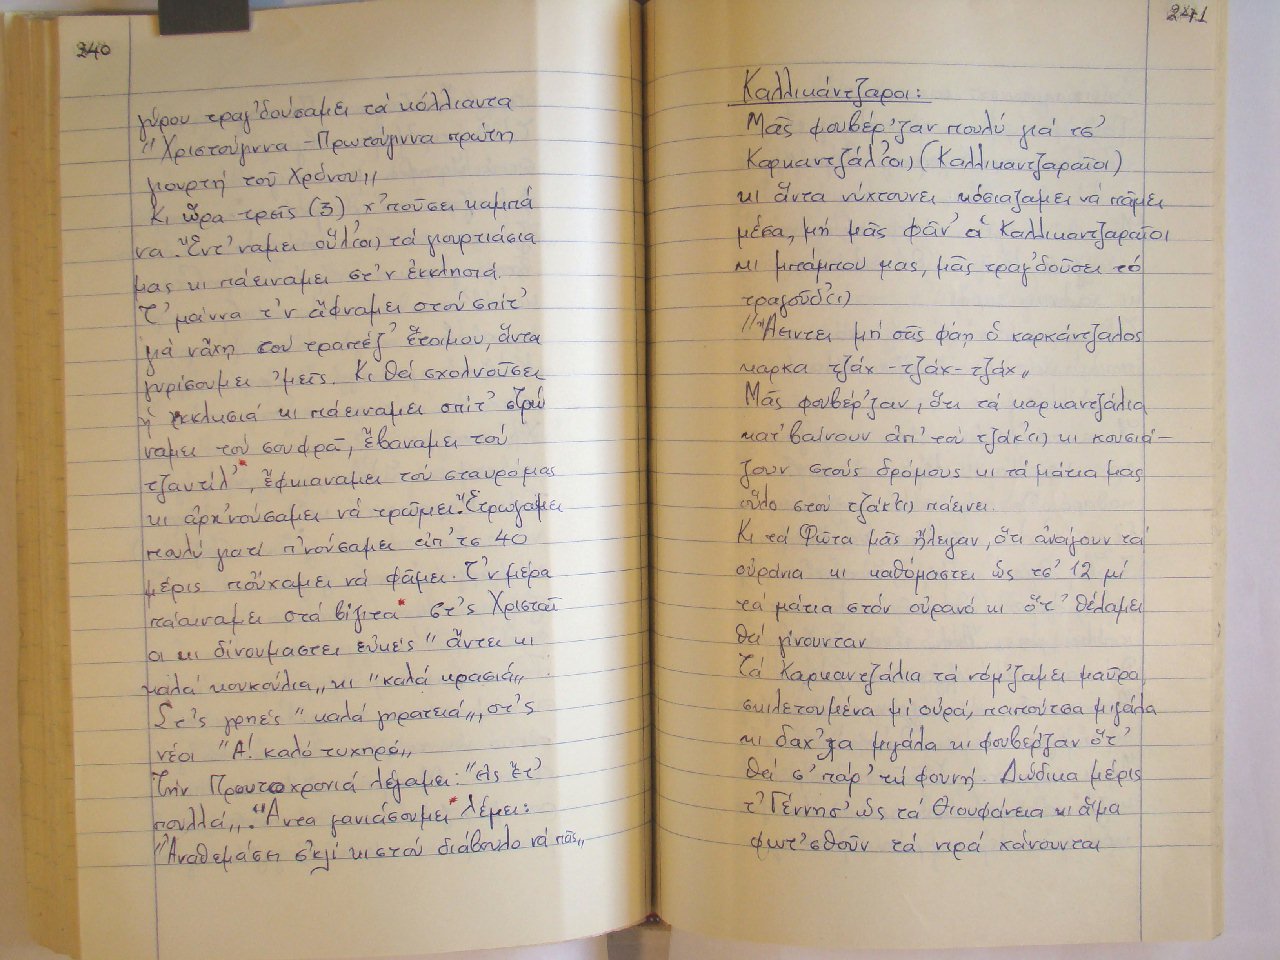 240
γύρου τραγ'δούσαμει τά κόλλιαντα
"Χριστούγιννα - Πρωτούγιννα πρώτη
γιουρτή τοῦ Χρόνου"
Κι ὥρα τρεῖς (3) χ'ποῦσει καμπά
να. Ἔντ'ναμει οὕλ(οι) τά γιουρτιάσια
μας κι πάειναμει στ'ν ἐκκλησιά.
Τ' μάννα τ'ν ἄφναμει στού σπίτ'
γιά νἄχη τού τραπέζ' ἕτοιμου, ἅντα
γυρίσουμει 'μεῖς. Κι θά σχολνοῦσει
ἡ ἐκκλησιά κι πάειναμει σπίτ' στρώ
ναμει τού σουφρᾶ, ἔβαναμει τού
τζαντίλ'*, ἔφκιαναμει τού σταυρόμας
κι ἀρχ'νούσαμει νά τρῶμει. Ἔτρωγαμει
πουλύ γιατί π'νούσαμει ἀπ'τς 40
μέρις πούχαμει νά φᾶμει. Τ'ν μέρα
πάαιναμει στά βίζιτα* στ'ς Χρισταῖ
οι κι δίνουμαστει εὐκές "ἄντει κι
καλά κουκούλια" κι "καλά κρασιά"
Στ'ς γρηές "καλά γηρατειά", στ'ς
νέοι "Α! καλό τυχηρό"
Τήν Πρωτοχρονιά λέγαμει: "εἰς ἔτ'
πουλλά". "Ἅντα γανιάσουμει* λέμει:
"Ἀναθεμάση σ'κλί κι στού διάβουλο νά πᾶς"
241
Καλλικάντζαροι:
Μᾶς φουβέρ'ζαν πουλύ γιά τσ'
Καρκαντζάλ(οι) (Καλλικαντζαραῖοι)
κι ἅντα νύχτουνει κόσιαζαμει νά πᾶμει
μέσα, μή μᾶς φᾶν' οἱ Καλλικαντζαραῖοι
κι μπάμπου μας, μᾶς τραγ'δοῦσει τό
τραγοῦδ(ι)
"Ἄειντει μή σᾶς φάη ὁ καρκάντζαλος
καρκα τζάκ - τζάκ - τζάκ"
Μᾶς φουβέρ'ζαν, ὅτι τά καρκαντζάλια
κατ'βαίνουν ἀπ' τού τζάκ(ι) κι κουσιά-
ζουν στούς δρόμους κι τά μάτια μας
οὗλο στού τζάκ(ι) πάεινει.
Κι τά Φῶτα μᾶς ἤλεγαν, ὅτι ἀνοίγουν τά
οὐράνια κι καθόμαστει ὡς τσ' 12 μί
τά μάτια στόν οὐρανό κι ὅτ' θέλαμει
θά γίνουνταν
Τά Καρκαντζάλια τά νόμ'ζαμει μαῦρα,
σκιλετουμένα μί οὐρά, παπούτσα μιγάλα
κι δάχ'λα μιγάλα κι φουβέρ'ζαν ὅτ'
θά σ' πάρ' τή φουνή. Δώδικα μέρις
τ' Γέννησ' ὡς τά Θιουφάνεια κι ἅμα
φωτ'σθοῦν τά νιρά χάνουνται